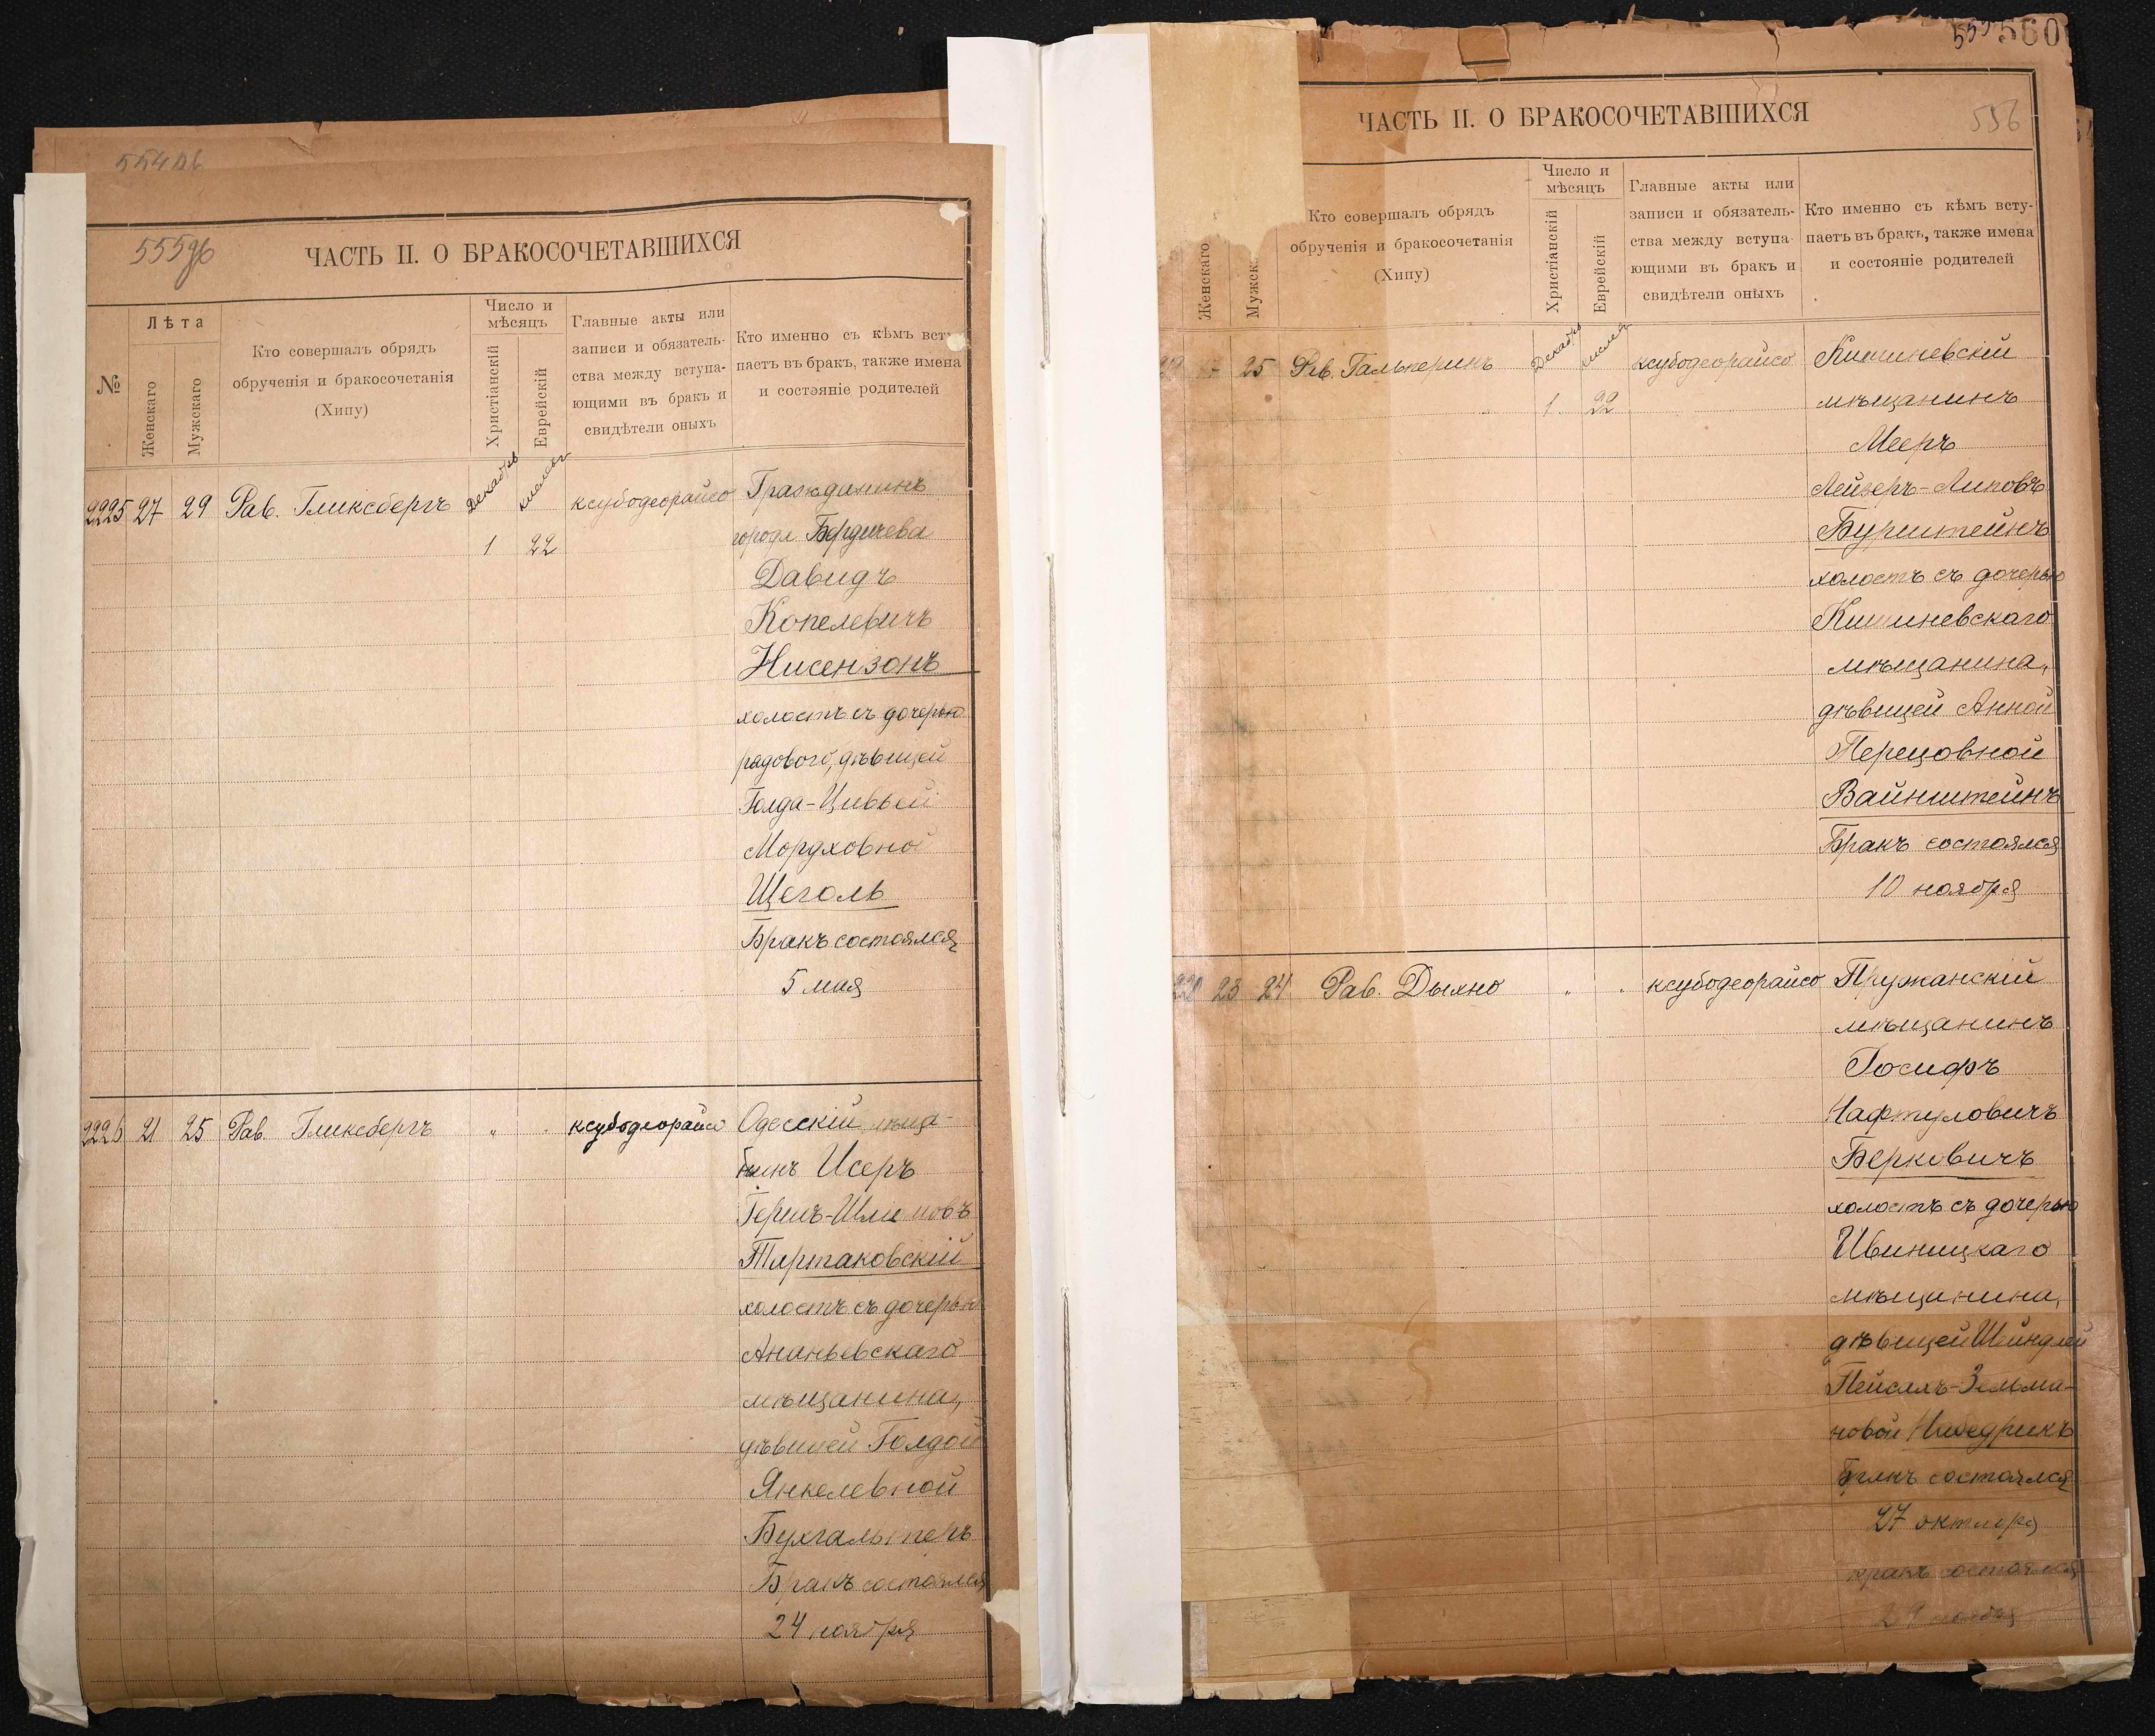 554об
555об
ЧАСТЬ II. О БРАКОСОЧЕТАВШИХСЯ
№
Лѣта
Женскаго
Мужскаго
Кто совершалъ обрядъ
обрученія и бракосочетанія
(Хипу)
Число и
мѣсяцъ
Христіанскій
Еврейскій
Главные акты или
записи и обязатель-
ства между вступа-
ющими въ бракъ и
свидѣтели оныхъ
Кто именно съ кѣмъ всту
паетъ въ бракъ, также имена
и состояніе родителей
2225 27 29 Рав. Гликсбергъ Декабрь кислевъ ксубодеорайсо Гражданинъ
1 22 города Бердичева
Давидъ
Копелевичъ
Нисензонъ
холостъ съ дочерью
рядового, дѣвицей
Голда-Цивьей
Мордховной
Щеголь
Бракъ состоялся
5 мая
2226 21 25 Рав. Гликсбергъ " " ксубодеорайсо Одесскій мѣща-
нинъ Исеръ
Гершъ-Шлемовъ
Тартаковскій
холостъ съ дочерью
Ананьевскаго
мѣщанина,
дѣвицей Голдой
Янкелевной
Бухгальтеръ
Бракъ состоялся
24 ноября
559 560
ЧАСТЬ II. О БРАКОСОЧЕТАВШИХСЯ
556
Женскаго
Мужск
Кто совершалъ обрядъ
обрученія и бракосочетанія
(Хипу)
Число и
мѣсяцъ
Христіанскій
Еврейскій
Главные акты или
записи и обязатель-
ства между вступа-
ющими въ бракъ и
свидѣтели оныхъ
Кто именно съ кѣмъ всту-
паетъ въ бракъ, также имена
и состояніе родителей
25 Рав. Гальперинъ Декабрь кислевъ ксубодеорайсо Кишиневскій
1 22 мѣщанинъ
Мееръ
Лейзеръ-Липовъ
Бурштейнъ
холостъ съ дочерью
Кишиневскаго
мѣщанина,
дѣвицей Анной
Перецовной
Вайнштейнъ
Бракъ состоялся
10 ноября
23 24 Рав. Дыхно " " ксубодеорайсо Пружанскій
мѣщанинъ
Іосифъ
Нафтуловичъ
Берковичъ
холостъ съ дочерью
Ивницкаго
мѣщанина,
дѣвицей Шейндлей
Пейсахъ-Зельма-
новой
Бракъ состоялся
27 октября
бракъ состоялся
ноября